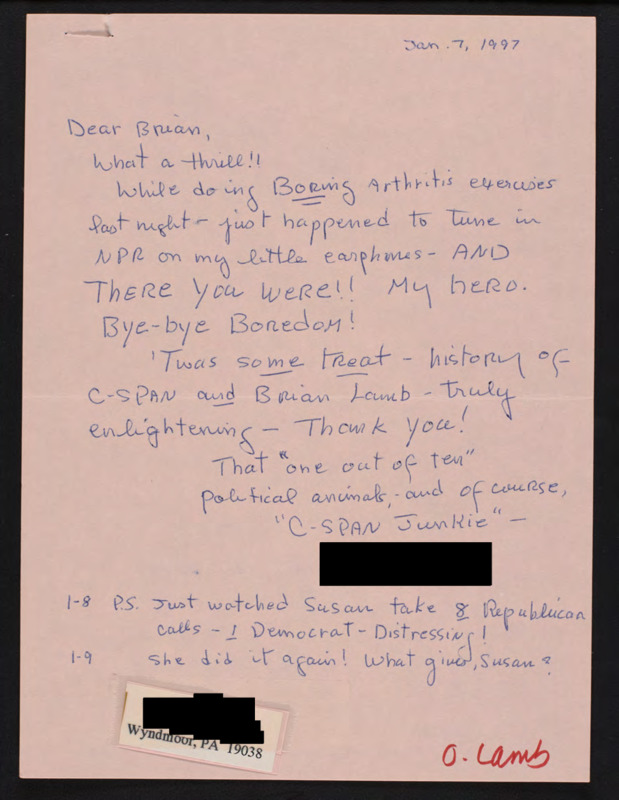 Jan. 7, 1997
Dear Brian,
What a thrill!!
While doing BORing Arthritis exercises
last night - just happened to tune in
NPR on my little earphones - AND
THERE YOU WERE!! My hero.
Bye-bye Boredom!
'Twas some treat - history of
C-SPAN and Brian Lamb - truly
enlightening - Thank you!
That "one out of ten"
political animals, - and of course,
"C-SPAN Junkie" -
1-8 P.S. Just watched Susan take 8 Republican
calls - 1 Democrat - Distressing!
1-9 She did it again! What gives, Susan?
Wyndmoor, PA 19038
O. Lamb